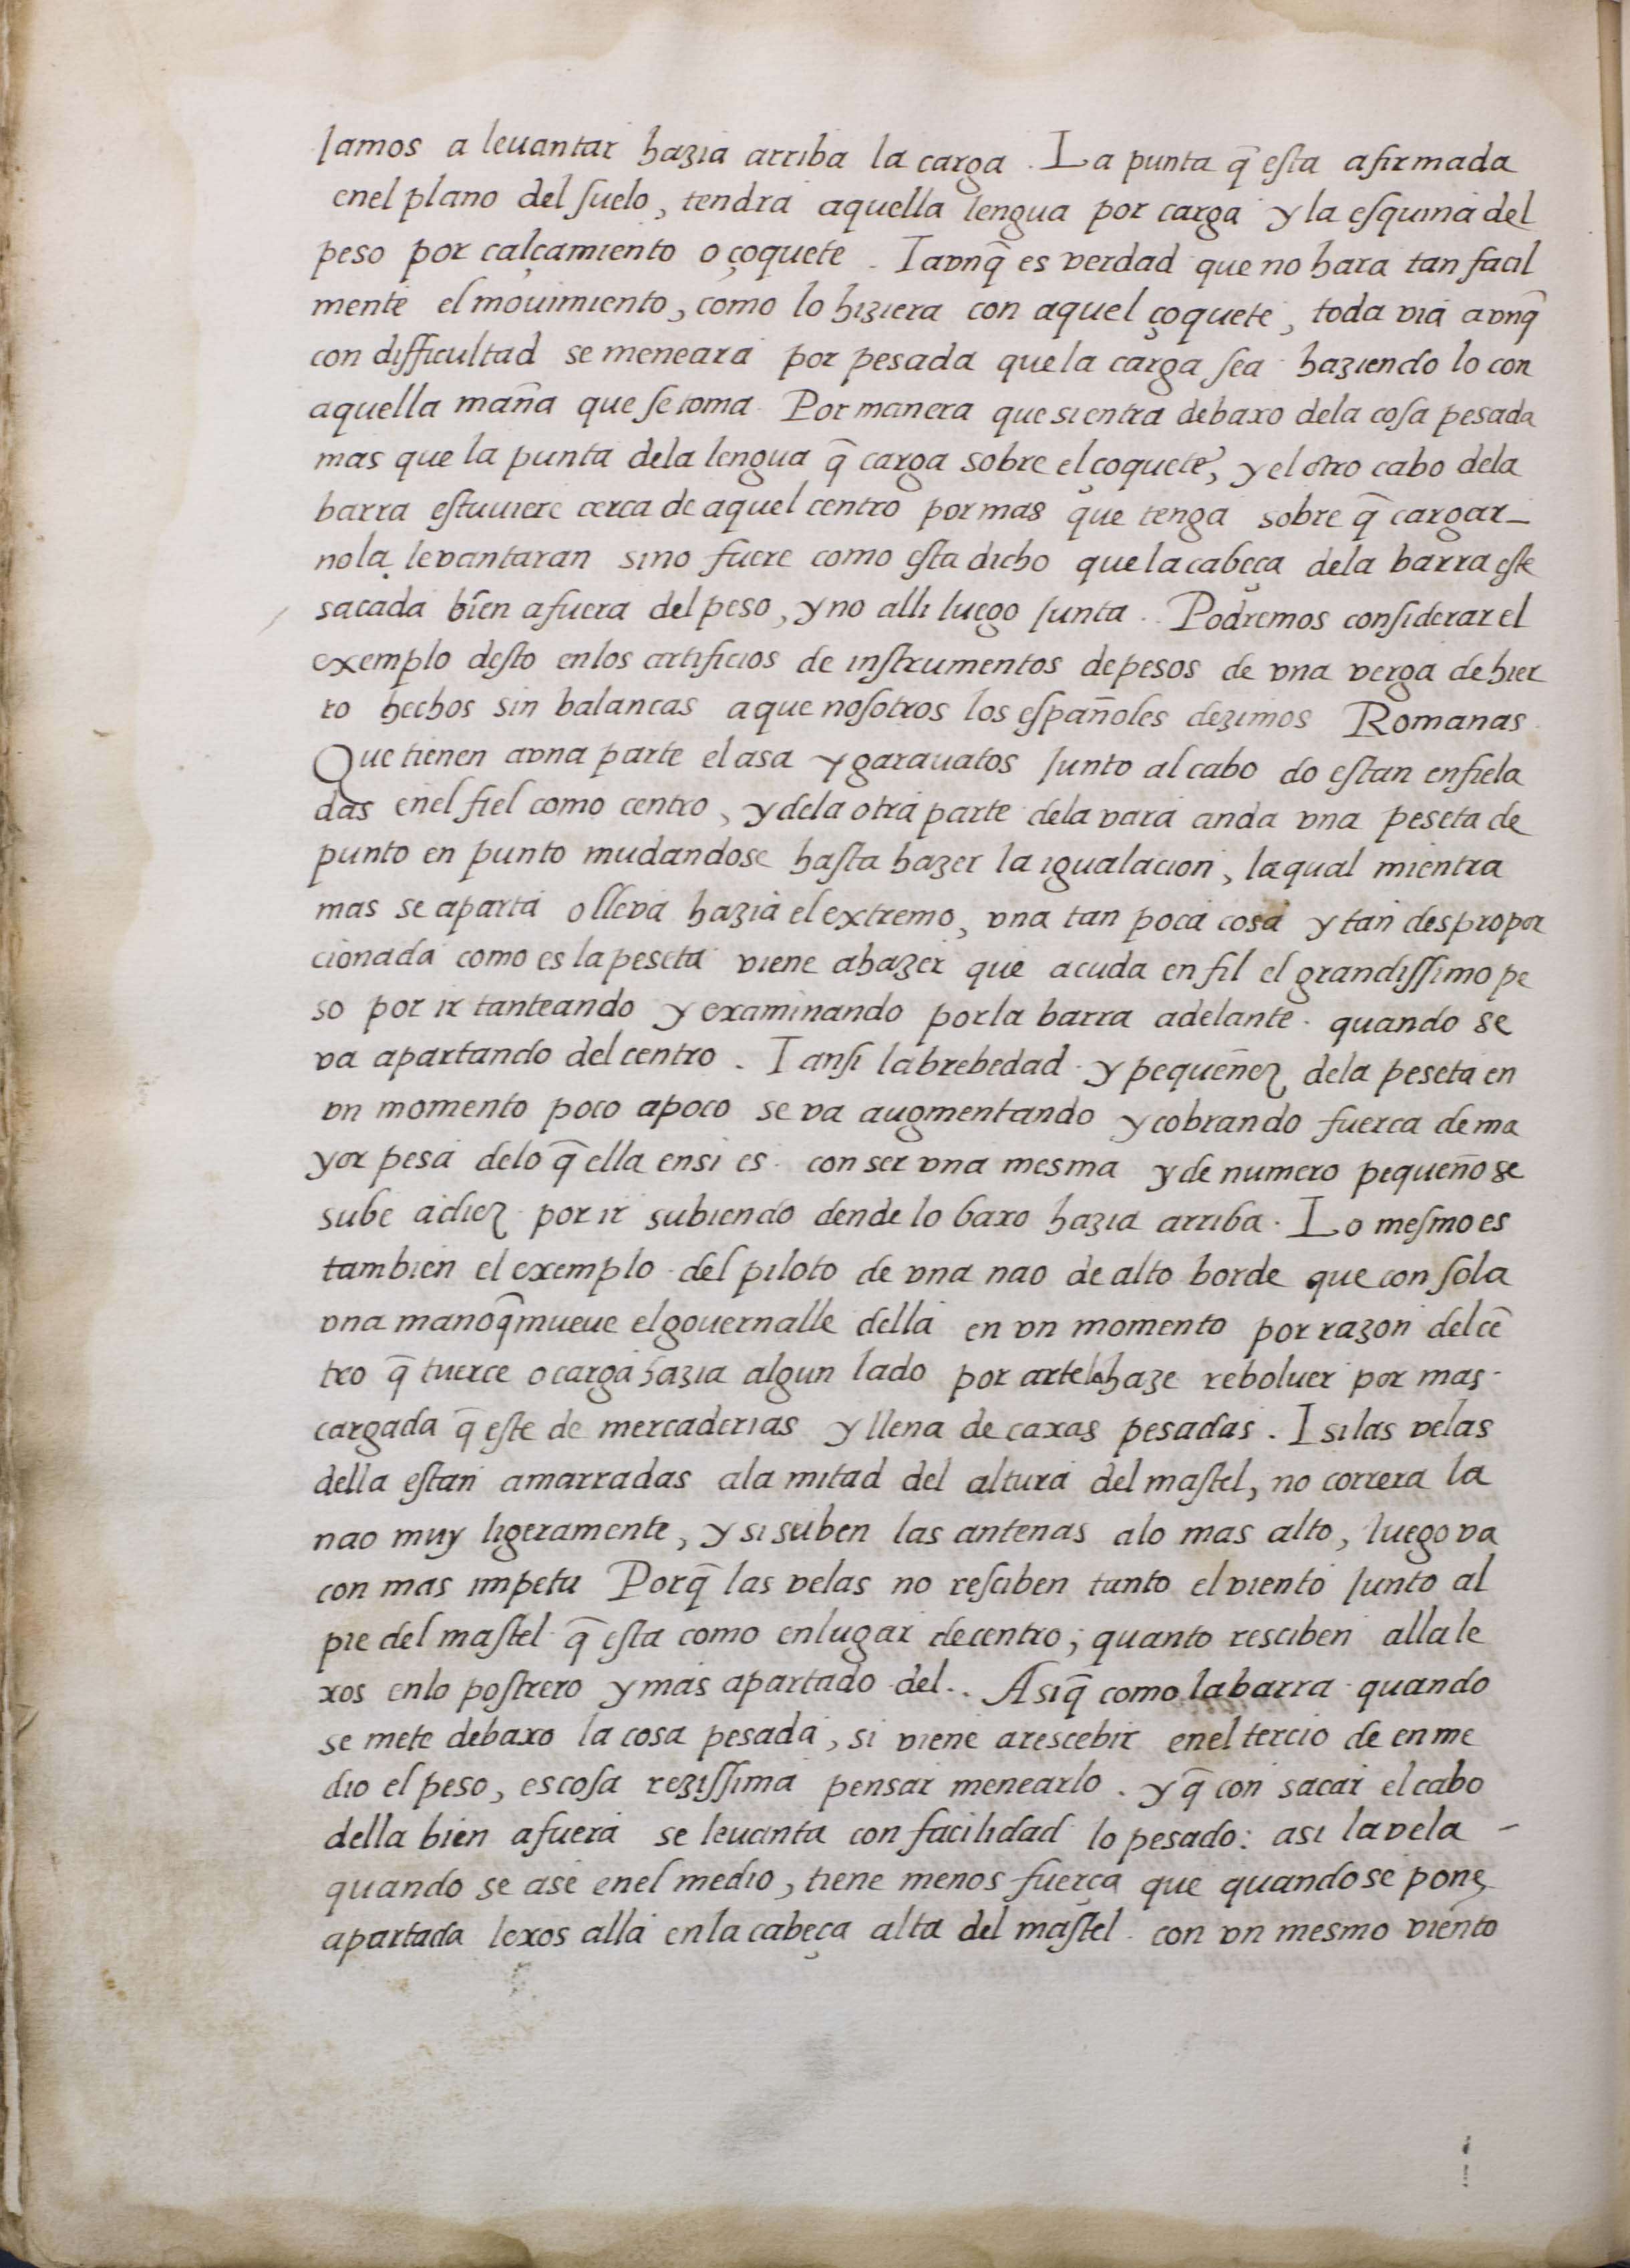 jamos a leuantar hazia arriba la carga. La punta q̃ esta afirmada
enel plano del suelo, tendra aquella lengua por carga y la esquina del
peso por calçamiento o çoquete. I avnq̃ es verdad que no hara tan facil
mente el mouimiento, como lo hiziera con aquel çoquete, toda via avnq̃
con difficultad se meneara por pesada que la carga sea haziendo lo con
aquella maña que se toma. Por manera que si entra debaxo dela cosa pesada
mas que la punta dela lengua q̃ carga sobre el çoquete, y el otro cabo dela
barra estuuiere cerca de aquel centro por mas que tenga sobre q̃ cargar_
no la levantaran sino fuere como esta dicho que la cabeça dela barra este
sacada bien afuera del peso, y no alli luego junta. Podremos considerar el
exemplo desto enlos artificios de instrumentos de pesos de vna verga de hier
ro hechos sin balancas a que nosotros los españoles dezimos Romanas.
Que tienen a vna parte el asa y garauatos junto al cabo do estan enfiela
das enel fiel como centro, y dela otra parte dela vara anda vna peseta de
punto en punto mudandose hasta hazer la igualacion, la qual mientra
mas se aparta o lleva hazia el extremo, vna tan poca cosa y tan despropor
cionada como es la peseta viene a hazer que acuda en fil el grandissimo pe
so por ir tanteando y examinando por la barra adelante. quando se
va apartando del centro. I ansi la brebedad y pequeñez dela peseta en
vn momento poco a poco se va augmentando y cobrando fuerca de ma
yor pesa delo q̃ ella ensi es. con ser vna mesma y de numero pequeño se
sube a diez por ir subiendo dende lo baxo hazia arriba. Lo mesmo es
tambien el exemplo del piloto de vna nao de alto borde que con sola
vna mano q̃ mueue el gouernalle della en vn momento por razon del cẽ
tro q̃ tuerce o carga hazia algun lado por arte la haze reboluer por mas
cargada q̃ este de mercaderias y llena de caxas pesadas. I si las velas
della estan amarradas ala mitad del altura del mastel, no correra la
nao muy ligeramente, y si suben las antenas alo mas alto, luego va
con mas impetu Porq̃ las velas no resciben tanto el viento junto al
pie del mastel q̃ esta como enlugar de centro; quanto resciben alla le
xos enlo postrero y mas apartado del. Asi q̃ como la barra quando
se mete debaxo la cosa pesada, si viene a rescebir enel tercio de en me
dio el peso, es cosa rezissima pensar menearlo. y q̃ con sacar el cabo
della bien afuera se leuanta con facilidad lo pesado: asi la vela –
quando se ase enel medio, tiene menos fuerça que quando se pone
apartada lexos alla en la cabeça alta del mastel con vn mesmo viento